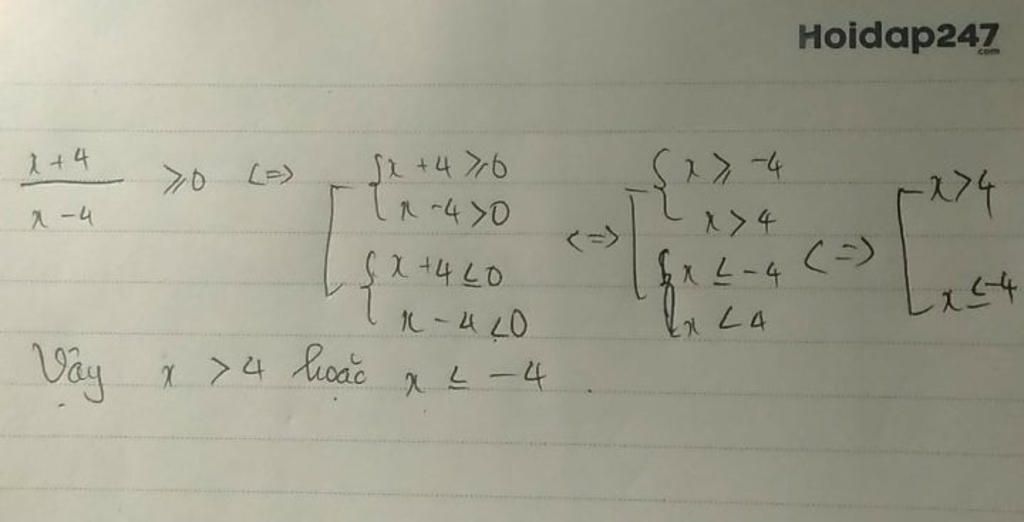 Hoidap247
.com
x+4 / x-4 ⩾0 <=> [ { x+4⩾0 x-4>0 { x+4≤0 x-4<0 <=> [ { x⩾-4 x>4 { x≤-4 x<4 <=> [ x>4 x≤-4
Vậy x >4 hoặc x ≤ -4 .